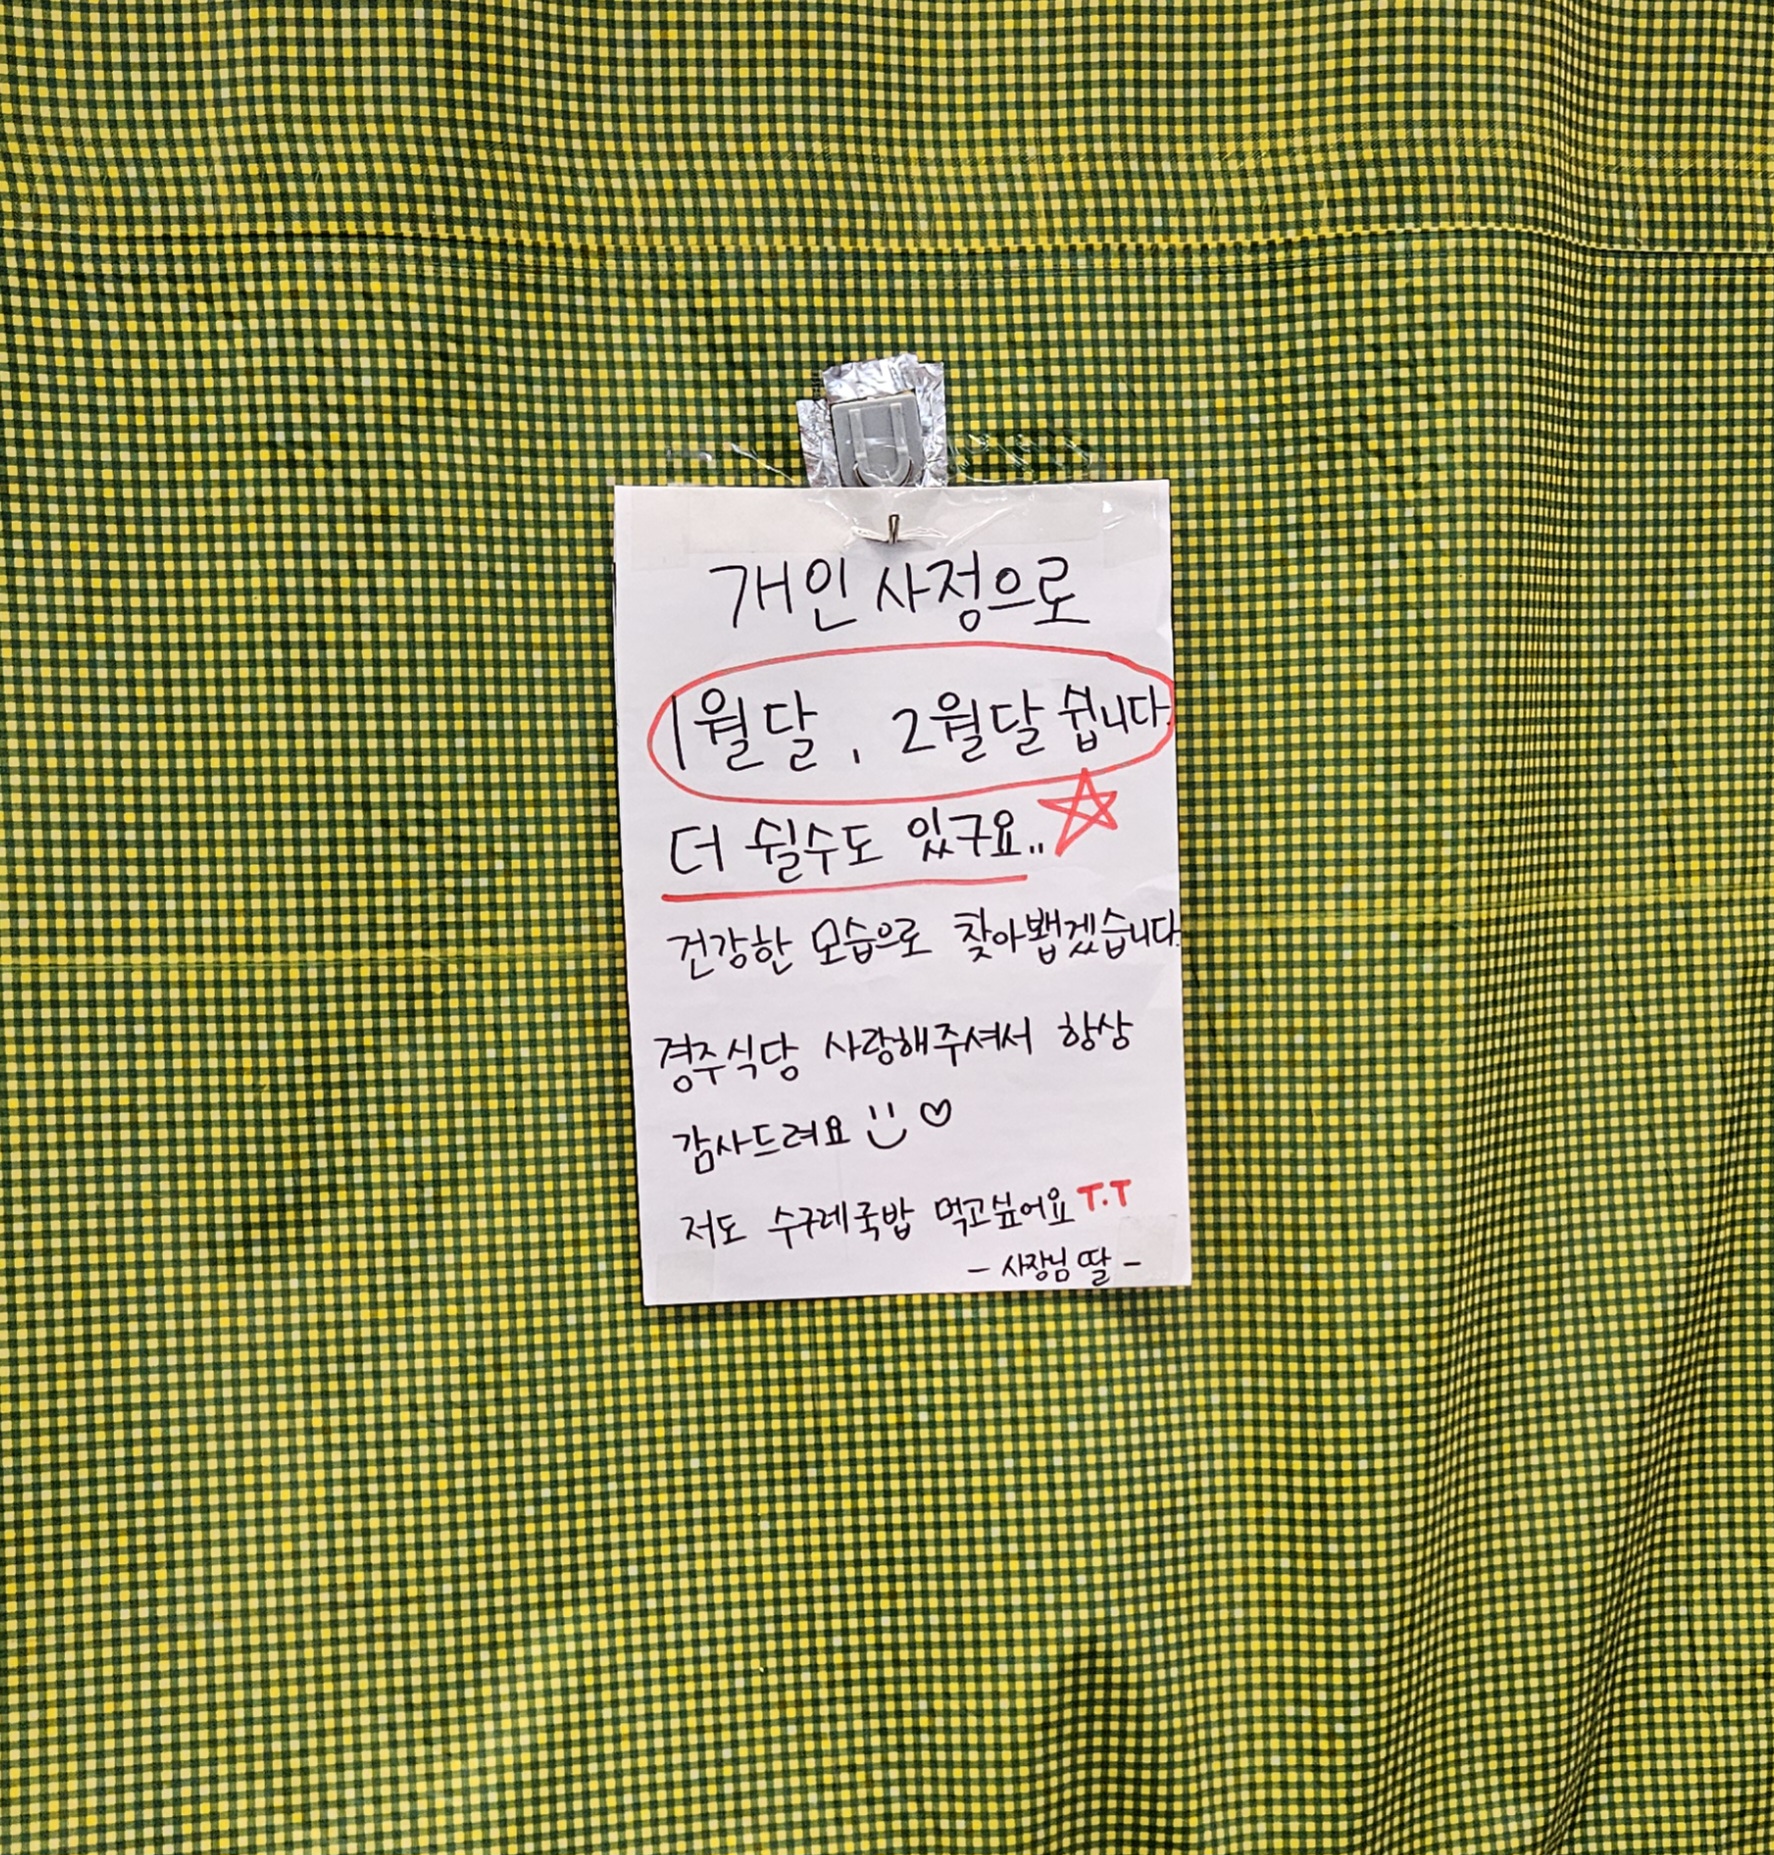 개인 사정으로
1월달, 2월달 쉽니다.
더 쉴수도 있구요..
건강한 모습으로 찾아뵙겠습니다.
경주식당 사랑해주셔서 항상
감사드려요
저도 수구레국밥 먹고싶어요 T.T
- 사장님 딸 -